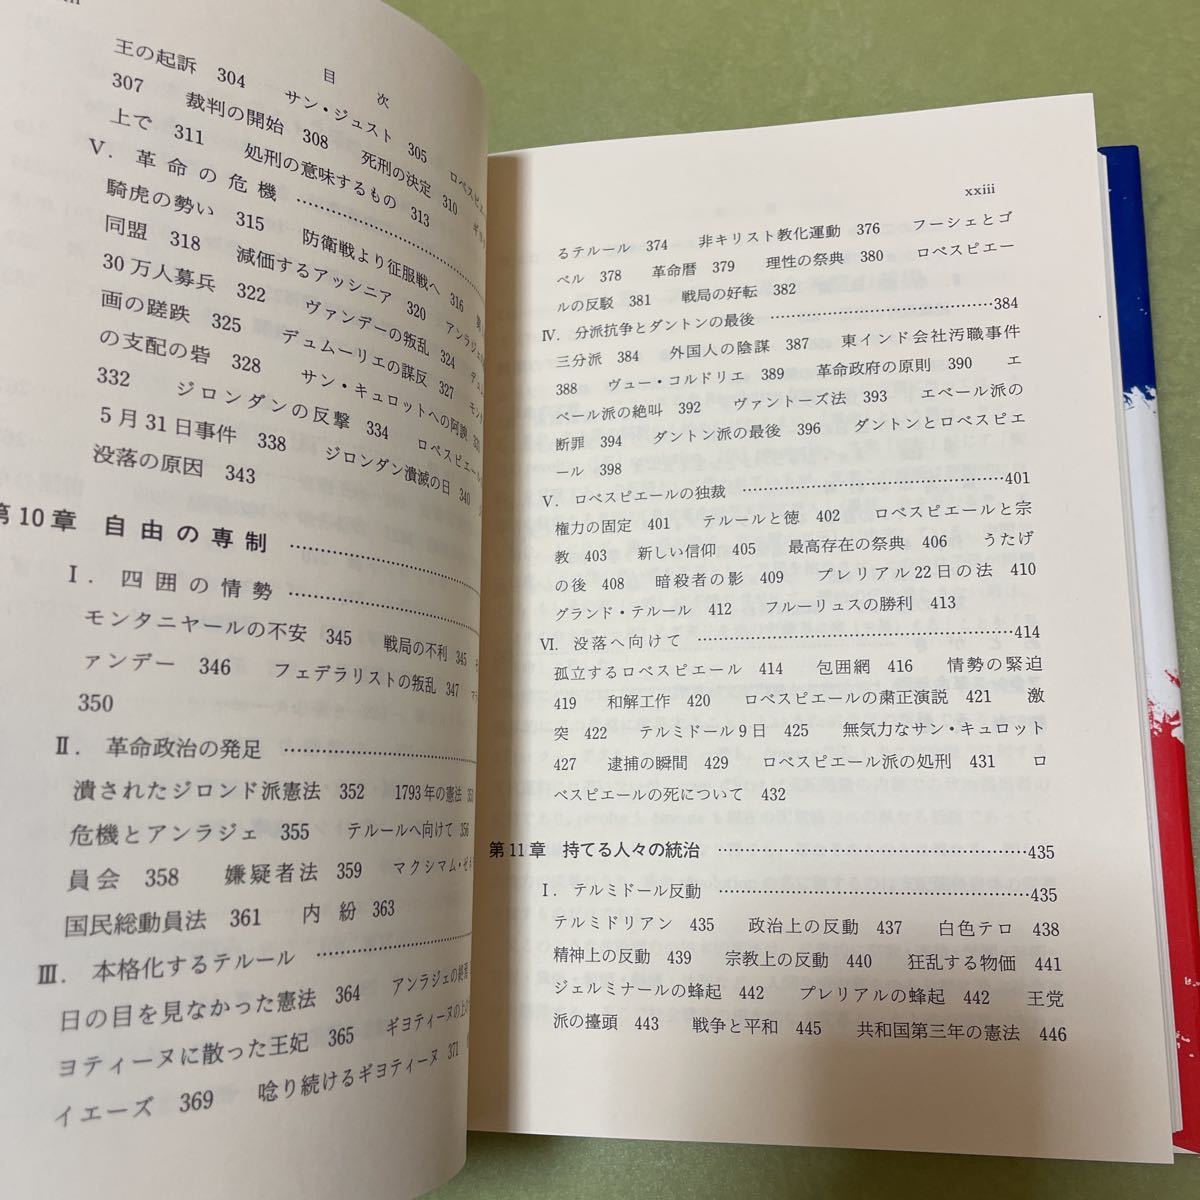 目次
王の起訴 304 サン・ジュスト 305 ロベスピエ
307 裁判の開始 308 死刑の決定 310
上で 311 処刑の意味するもの 313
Ⅴ. 革命の危機
騎虎の勢い 315 防衛戦より征服戦へ 316
同盟 318 減価するアッシニア 320 アンラジェ
30万人募兵 322 ヴァンデーの叛乱 324
画の蹉跌 325 デュムーリエの謀反 327
の支配の砦 328 サン・キュロットへの阿諛
332 ジロンダンの反撃 334 ロベスピエール
5月31日事件 338 ジロンダン潰滅の日 340
没落の原因 343
第10章 自由の専制
Ⅰ. 四囲の情勢
モンタニヤールの不安 345 戦局の不利 345
ァンデー 346 フェデラリストの叛乱 347
350
Ⅱ. 革命政治の発足
潰されたジロンド派憲法 352 1793年の憲法
危機とアンラジェ 355 テルールへ向けて 356
員会 358 嫌疑者法 359 マクシマム・ゼ
国民総動員法 361 内紛 363
Ⅲ. 本格化するテルール
日の目を見なかった憲法 364 アンラジェの終焉
ヨティーヌに散った王妃 365 ギヨティーヌの上の
イエーズ 369 唸り続けるギヨティーヌ 371
xxiii
るテルール 374 非キリスト教化運動 376 フーシェとゴ
ベル 378 革命暦 379 理性の祭典 380 ロベスピエー
ルの反駁 381 戦局の好転 382
Ⅳ. 分派抗争とダントンの最後 384
三分派 384 外国人の陰謀 387 東インド会社汚職事件
388 ヴュー・コルドリエ 389 革命政府の原則 390 エ
ベール派の絶叫 392 ヴァントーズ法 393 エベール派の
断罪 394 ダントン派の最後 396 ダントンとロベスピエ
ール 398
Ⅴ. ロベスピエールの独裁 401
権力の固定 401 テルールと徳 402 ロベスピエールと宗
教 403 新しい信仰 405 最高存在の祭典 406 うたげ
の後 408 暗殺者の影 409 プレリアル22日の法 410
グランド・テルール 412 フルーリュスの勝利 413
Ⅵ. 没落へ向けて 414
孤立するロベスピエール 414 包囲網 416 情勢の緊迫
419 和解工作 420 ロベスピエールの粛正演説 421 激
突 422 テルミドール9日 425 無気力なサン・キュロット
427 逮捕の瞬間 429 ロベスピエール派の処刑 431 ロ
ベスピエールの死について 432
第11章 持てる人々の統治 435
Ⅰ. テルミドール反動 435
テルミドリアン 435 政治上の反動 437 白色テロ 438
精神上の反動 439 宗教上の反動 440 狂乱する物価 441
ジェルミナールの蜂起 442 プレリアルの蜂起 442 王党
派の擡頭 443 戦争と平和 445 共和国第三年の憲法 446